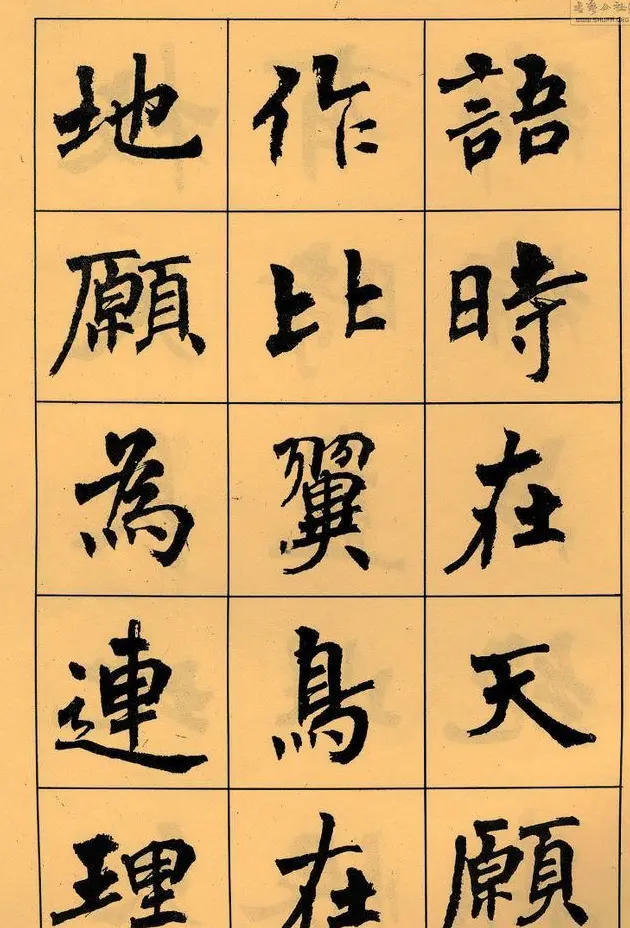 語時在天願
作比翼鳥在
地願為連理